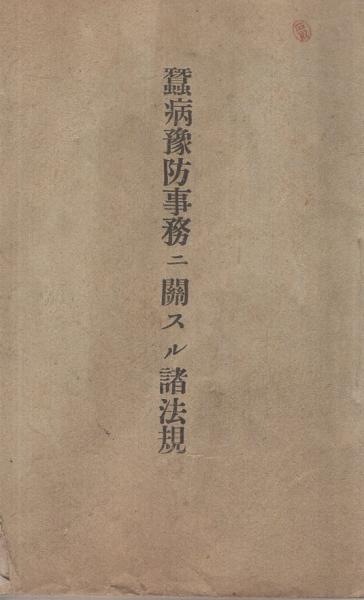 蠶病豫防事務ニ關スル諸法規